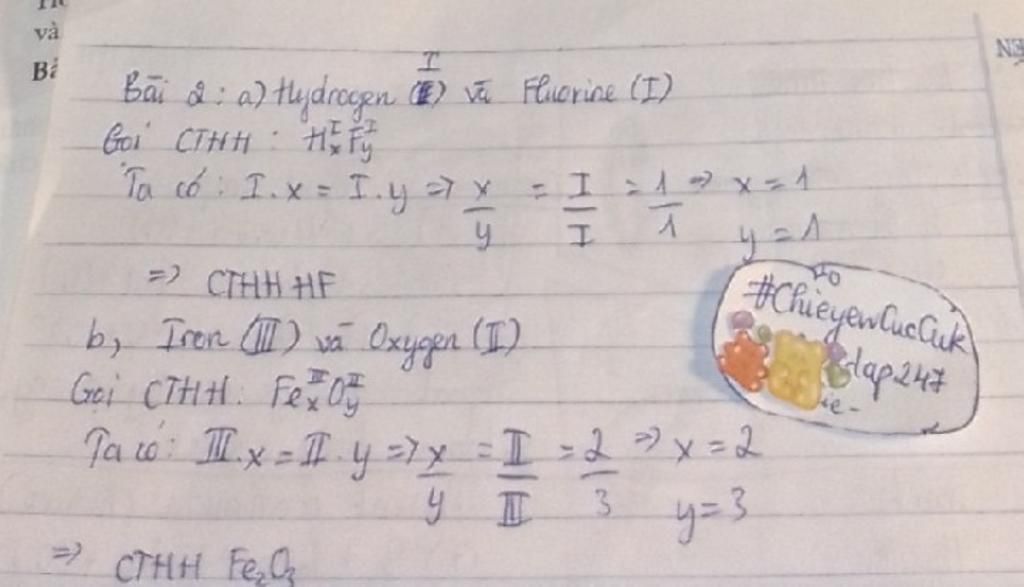 và
Bài 2: a) Hydrogen (I) và Fluorine (I)
Gọi CTHH: HxᴵFyᴵ
Ta có: I.x = I.y => x/y = I/I = 1/1 => x = 1
y = 1
=> CTHH HF
b, Iron (III) và Oxygen (II)
Gọi CTHH: FexᴵᴵᴵOyᴵᴵ
Ta có: III.x = II.y => x/y = II/III = 2/3 => x = 2
y = 3
=> CTHH Fe₂O₃
#ChieyewCucCuk